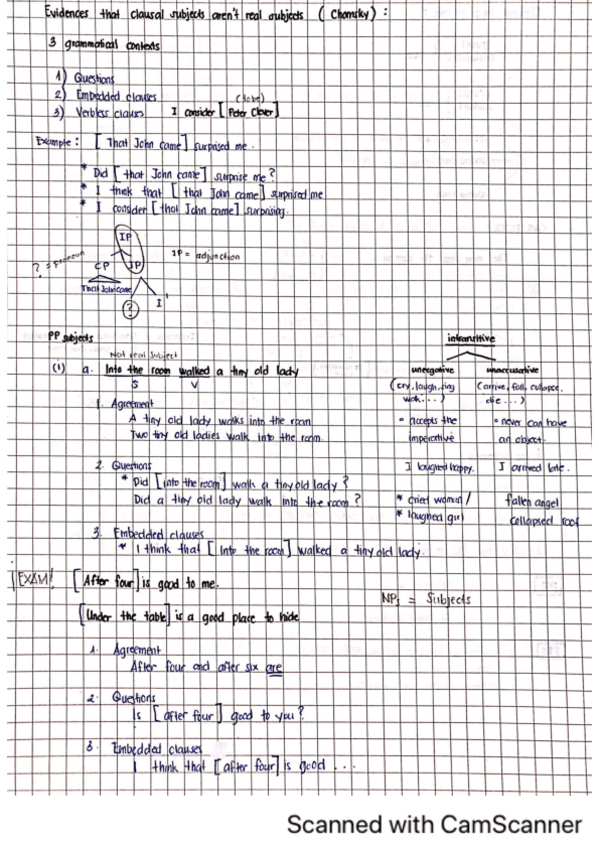 Evidences that clausal subjects aren't real subjects ( Chomsky ) :
3 grammatical contexts
1) Questions
2) Embedded clauses
3) Verbless clauses I consider [ Peter Clever ]
Example : [ That John came ] surprised me .
* Did [ that John came ] surprise me ?
* I think that [ that John came ] surprised me
* I consider [ that John came ] surprising.
IP
? = pronoun CP IP IP = adjunction
That John came
? I'
PP subjects
intransitive
Not real subject
(1) a. Into the room walked a tiny old lady
S V
unergative unaccusative
(cry, laugh, (arrive, fall, collapse,
walk ... ) die ... )
1. Agreement
A tiny old lady walks into the room
Two tiny old ladies walk into the room.
• accepts the • never can have
imperative an object.
2. Questions
* Did [ into the room ] walk a tiny old lady ?
Did a tiny old lady walk into the room ?
I laughed happy. I arrived late.
* cried woman / fallen angel
* laughed girl collapsed roof
3. Embedded clauses
* I think that [ Into the room ] walked a tiny old lady.
EXAM! [ After four ] is good to me.
NPs = Subjects
[Under the table] is a good place to hide
1. Agreement
After four and after six are
2. Questions
Is [ after four ] good to you ?
3. Embedded clauses
I think that [ after four ] is good ...
Scanned with CamScanner